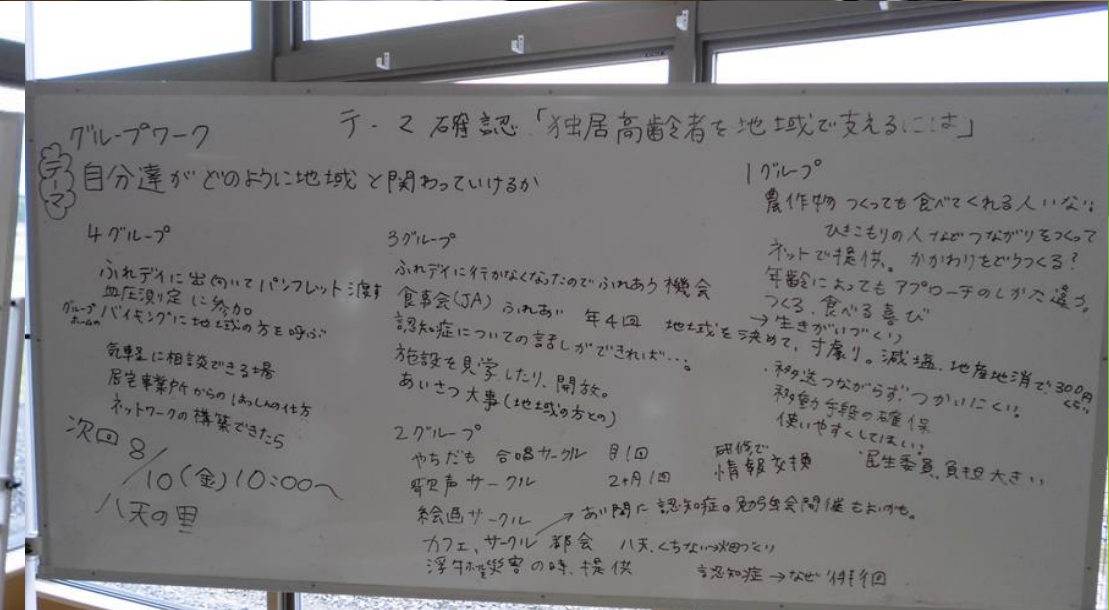 テーマ確認「独居高齢者を地域で支えるには」
グループワーク
テーマ
自分達がどのように地域と関わっていけるか
4グループ
ふれデイに出向いてパンフレット渡す
血圧測定に参加
グループホームの
バイキングに地域の方を呼ぶ
気軽に相談できる場
居宅事業所からのはっしんの仕方
ネットワークの構築できたら
次回8/10(金)10:00〜
八天の里
3グループ
ふれデイに行かなくなったのでふれあう機会
食事会(JA)ふれあい 年4回 地域を決めて、寸劇り。
認知症についての話しができれば…。
施設を見学したり、開放。
あいさつ大事(地域の方との)
2グループ
やちだも 合唱サークル 月1回
歌声サークル 2ヶ月1回
絵画サークル
→あい間に認知症の勉強会開催もよいのも。
カフェ、サークル 都会 八天、くちない→畑つくり
災害の時、提供
認知症→なぜ徘徊
1グループ
農作物つくっても食べてくれる人いない
ひきこもりの人などつながりをつくって
ネットで提供。かかわりをどうつくる?
年齢によってもアプローチのしかた違う。
つくる、食べる喜び
→生きがいづくり
減塩、地産地消で300円くらい
・移送つながらず、つかいにくい。
移動手段の確保
使いやすくしてほしい。
研修で
情報交換
民生委員、負担大きい